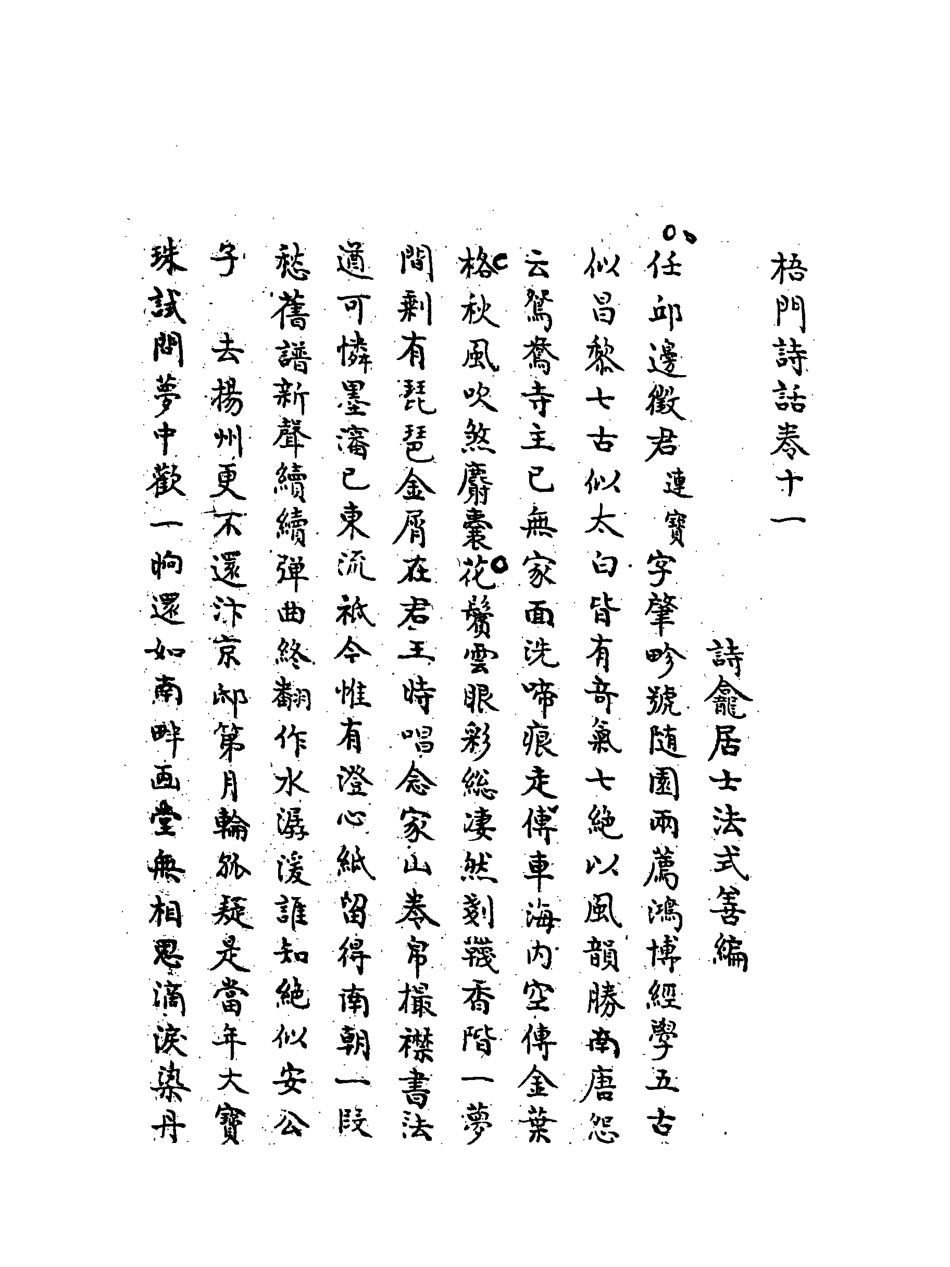 梧門詩話卷十一
詩龕居士法式善編
任邱邊徵君連寶字肇畛號隨園兩薦鴻博經學五古
似昌黎七古似太白皆有奇氣七絕以風韻勝南唐怨
云鴛鴦寺主已無家面洗啼痕走傳車海内空傳金葉
格秋風吹煞麝囊花鬢雲眼彩総凄然剗韈香階一夢
間剩有琵琶金屑在君王時唱念家山卷帛撮襟書法
遒可憐墨瀋已東流祗今惟有澄心紙留得南朝一段
愁舊譜新聲續續弹曲終翻作水潺湲誰知絕似安公
子 去揚州更不還汴京邸第月輪孤疑是當年大寶
珠試問夢中歡一晌還如南畔画堂無相思滴淚染丹